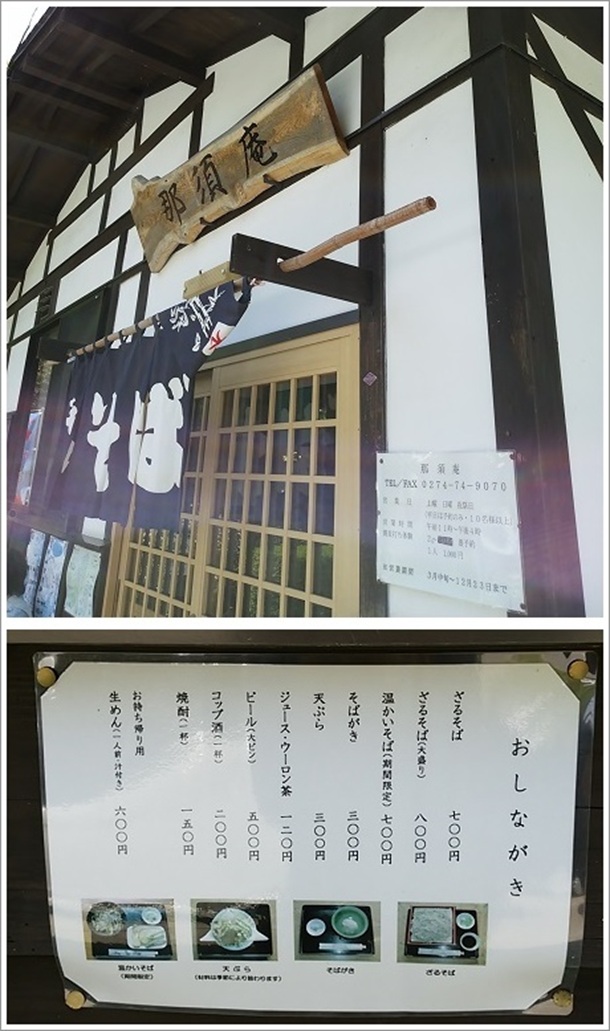 那須庵
そば
那須庵
TEL/FAX 0274-74-9070
営業日 土曜 日曜 祝祭日
(平日は予約のみ・10名様以上)
営業時間 午前11時~午後4時
要予約
1人 1,000円
3月中旬~12月23日まで
おしながき
ざるそば 七〇〇円
ざるそば(大盛り) 八〇〇円
温かいそば(期間限定) 七〇〇円
そばがき 三〇〇円
天ぷら 三〇〇円
ジュース・ウーロン茶 一二〇円
ビール(大ビン) 五〇〇円
コップ酒(一杯) 二〇〇円
焼酎(一杯) 一五〇円
お持ち帰り用
生めん(一人前・汁付き) 六〇〇円
温かいそば
(期間限定)
天ぷら
(材料は季節により替わります)
そばがき
ざるそば